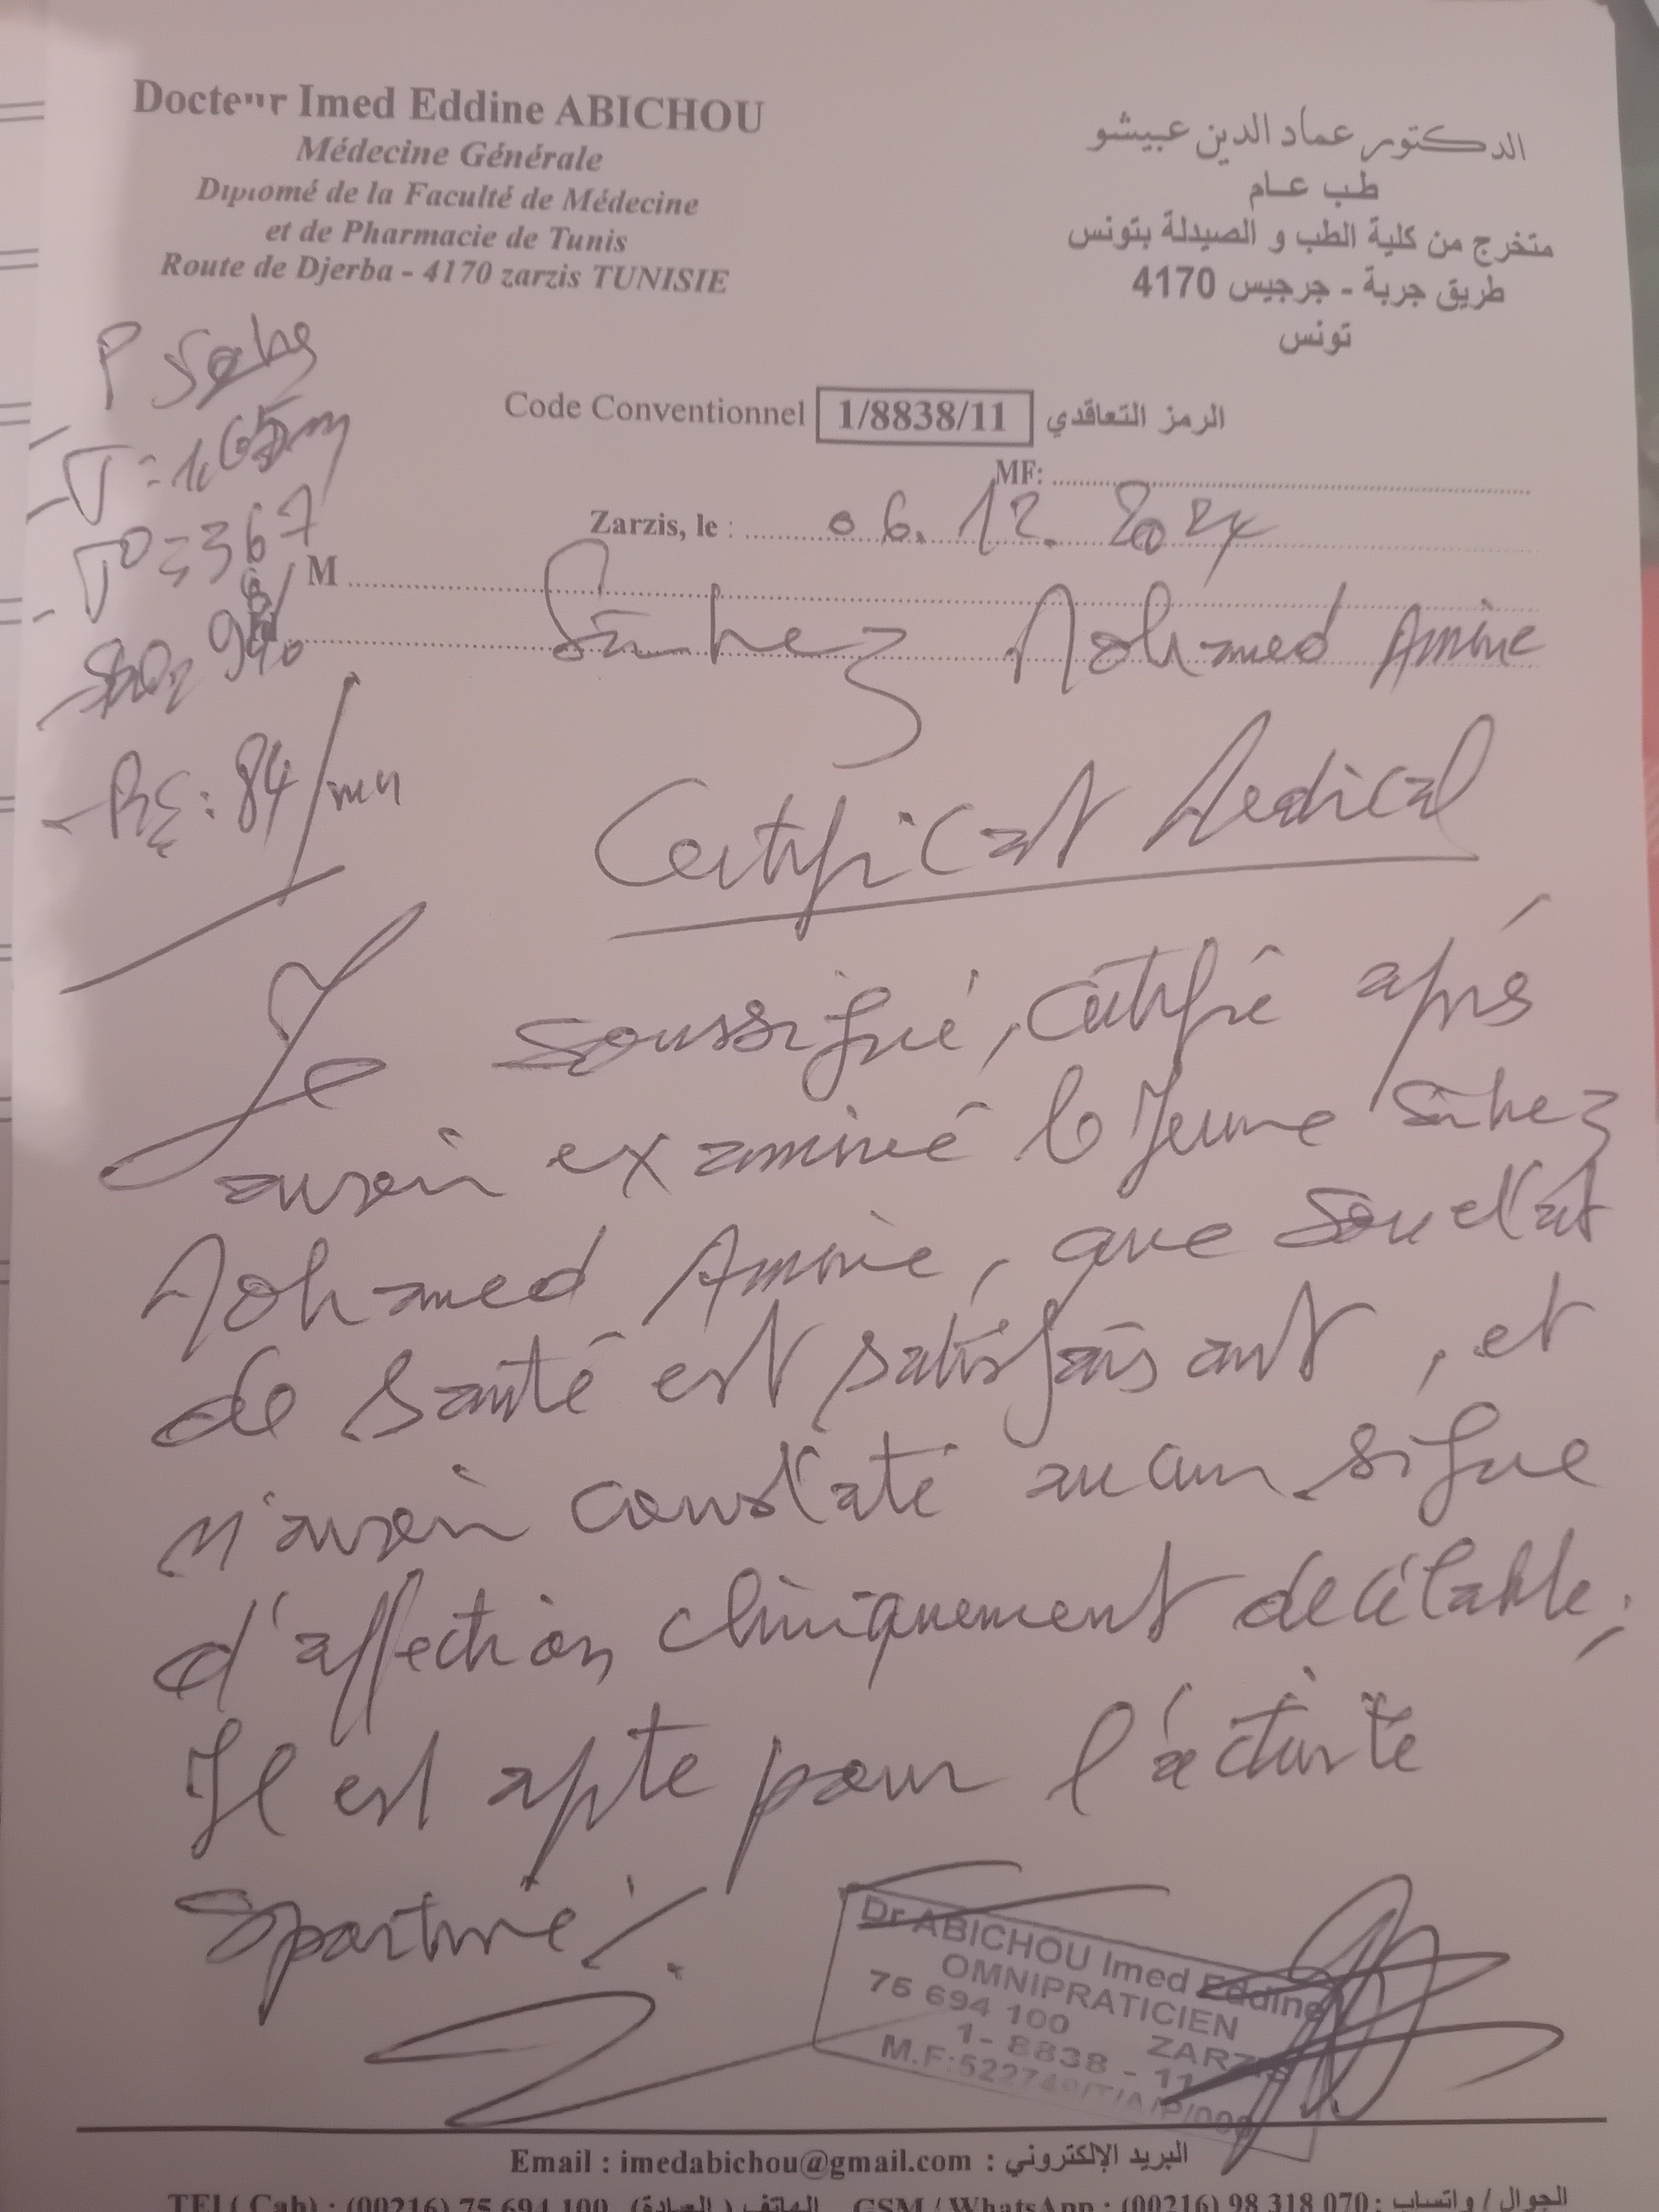 Docteur Imed Eddine ABICHOU
Médecine Générale
Diplomé de la Faculté de Médecine
et de Pharmacie de Tunis
Route de Djerba - 4170 zarzis TUNISIE
الدكتور عماد الدين عبيشو
طب عام
متخرج من كلية الطب و الصيدلة بتونس
طريق جربة - جرجيس 4170
تونس
Code Conventionnel 1/8838/11 الرمز التعاقدي
MF:
Zarzis, le : 06.12.2024
M
Mohamed Amine
P
T = 1,65m
T° = 367
SaO2
84/mn
Certificat Medical
Je soussigné, certifie après
avoir examiné le Jeune
Mohamed Amine, que son etat
de santé est satisfaisant, et
n'avoir constaté aucun signe
d'affection cliniquement decelable,
Il est apte pour l'activité
sportive.
Dr ABICHOU Imed Eddine
OMNIPRATICIEN
75 694 100 ZARZIS
1- 8838 - 11
Email : imedabichou@gmail.com : البريد الإلكتروني
TEl ( Cab) : (00216) 75 694 100 الهاتف ( العيادة) GSM / WhatsApp : (00216) 98 318 070 : الجوال / واتساب